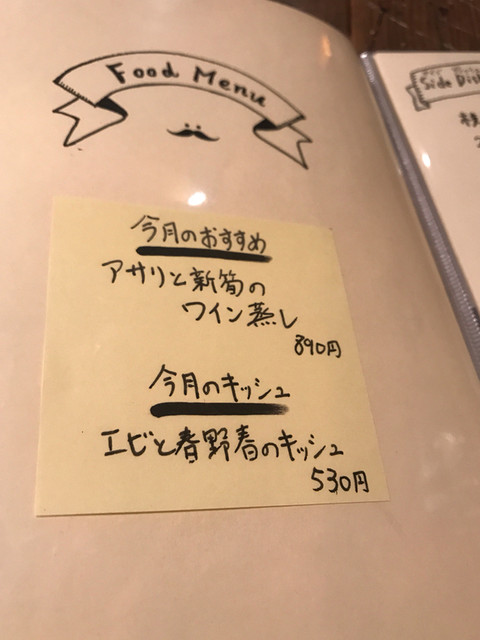 Food Menu
今月のおすすめ
アサリと新筍の
ワイン蒸し
890円
今月のキッシュ
エビと春野春のキッシュ
530円
Side Dish